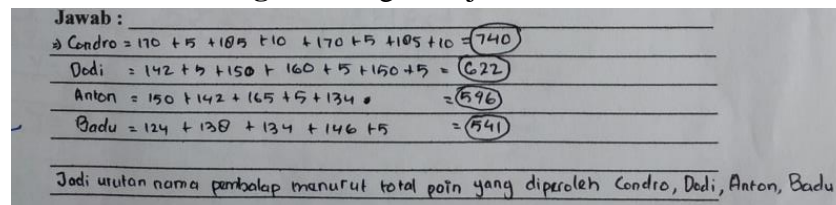 Jawab :
⇒ Condro = 170 + 5 + 185 + 10 + 170 + 5 + 185 + 10 = 740
Dodi = 142 + 5 + 150 + 160 + 5 + 150 + 5 = 622
Anton = 150 + 142 + 165 + 5 + 134 = 596
Badu = 124 + 138 + 134 + 146 + 5 = 541
Jadi urutan nama pembalap manurut total poin yang diperoleh Condro, Dodi, Anton, Badu